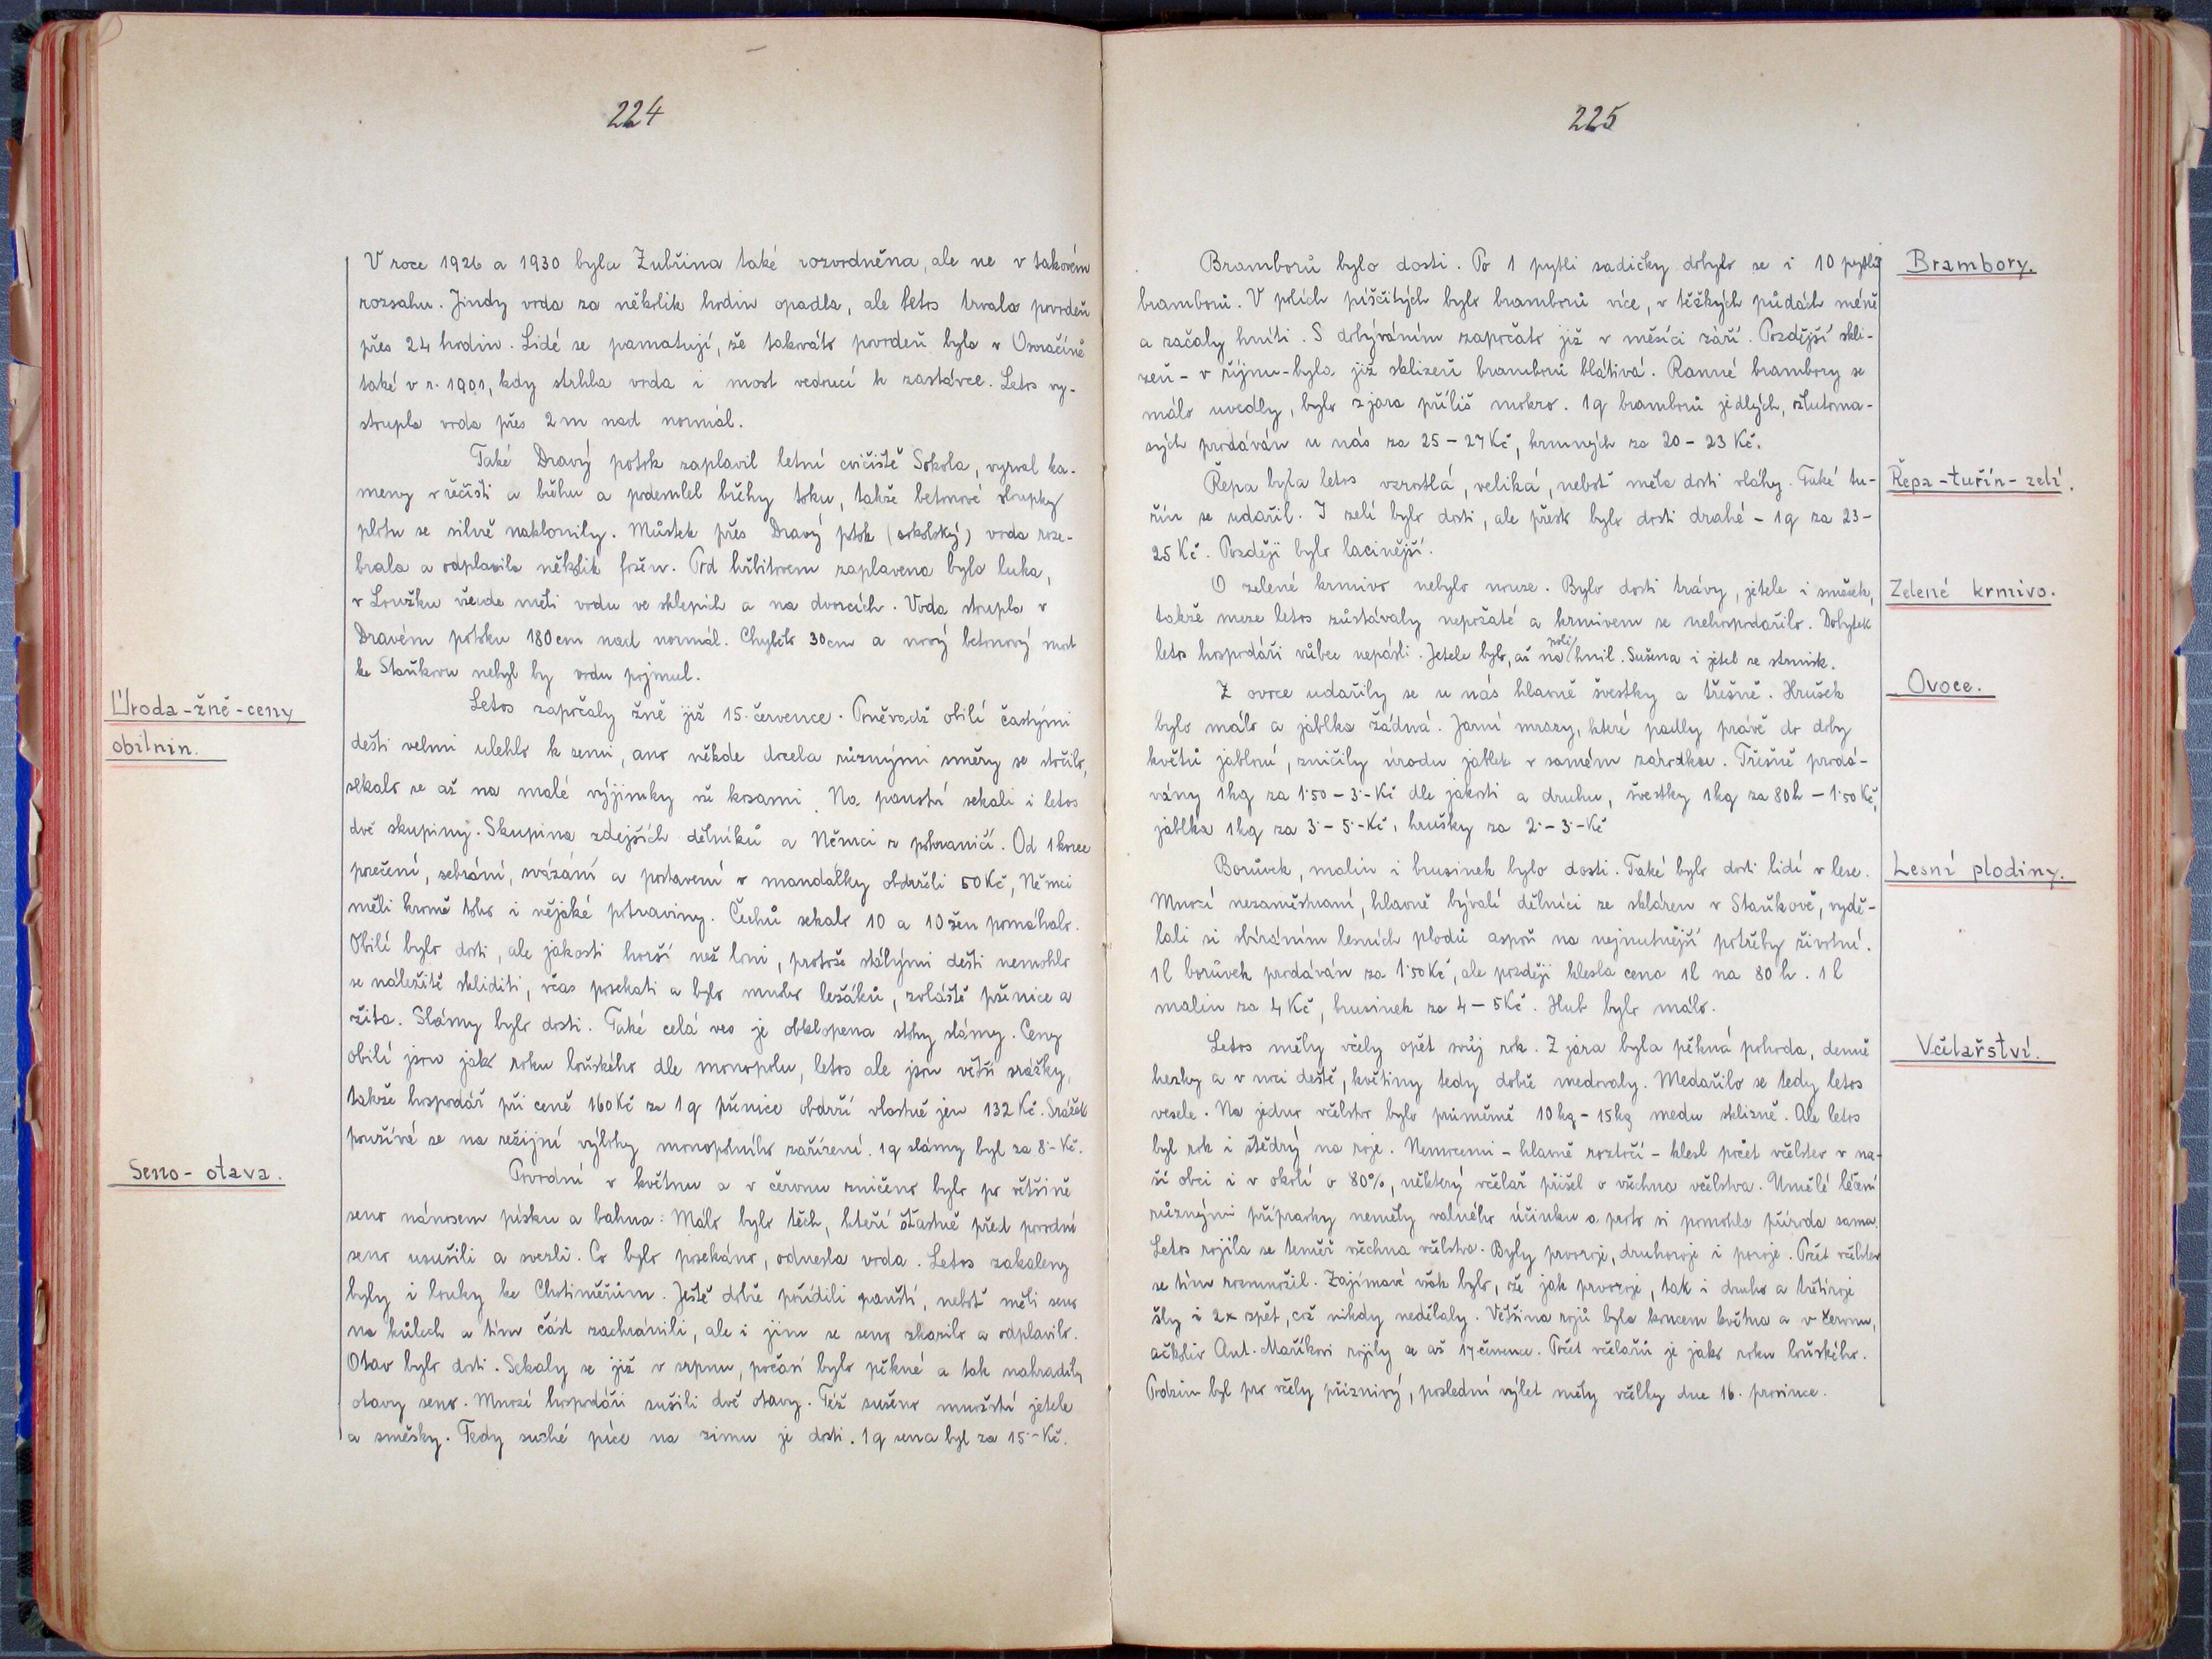 224
V roce 1926 a 1930 byla Zubřina také rozvodněna, ale ne v takovém
rozsahu. Jindy voda za několik hodin opadla, ale letos trvala povodeň
přes 24 hodin. Lidé se pamatují, že takováto povodeň byla v Osvračíně
také v r. 1901, kdy strhla voda i most vedoucí k zastávce. Letos vy-
stoupla voda přes 2 m nad normál.
Také Dravý potok zaplavil letní cvičiště Sokola, vyrval ka-
meny v řečišti a břehu a podemlel břehy toku, takže betonové sloupky
plotu se silně naklonily. Můstek přes Dravý potok (sokolský) voda roze-
brala a odplavila několik fošen. Pod hřbitovem zaplavena byla luka,
v Loužku všude měli vodu ve sklepích a na dvorcích. Voda stoupla v
Dravém potoku 180 cm nad normál. Chybělo 30 cm a nový betonový most
ke Staňkovu nebyl by vodu pojmul.
Úroda-žně-ceny
obilnin.
Letos započaly žně již 15. července. Poněvadž obilí častými
dešti velmi ulehlo k zemi, ano někde docela různými směry se stočilo,
sekalo se až na malé výjimky vše kosami. Na panství sekali i letos
dvě skupiny. Skupina zdejších dělníků a Němci z pohraničí. Od 1 korce
posečení, sebrání, svázání a postavení v mandalky obdrželi 50 Kč, Němci
měli kromě toho i nějaké potraviny. Čechů sekalo 10 a 10 žen pomáhalo.
Obilí bylo dosti, ale jakosti horší než loni, protože stálými dešti nemohlo
se náležitě skliditi, včas posekati a bylo mnoho ležáků, zvláště pšenice a
žita. Slámy bylo dosti. Také celá ves je obklopena stohy slámy. Ceny
obilí jsou jako roku loňského dle monopolu, letos ale jsou větší srážky,
takže hospodář při ceně 160 Kč za 1 q pšenice obdrží vlastně jen 132 Kč. Srážek
používá se na režijní výlohy monopolního zařízení. 1 q slámy byl za 8·- Kč.
Seno - otava.
Povodní v květnu a v červnu zničeno bylo po většině
seno nánosem písku a bahna. Málo bylo těch, kteří šťastně před povodní
seno usušili a svezli. Co bylo posekáno, odnesla voda. Letos zakaleny
byly i louky ke Chotiměřům. Ještě dobře pořídili panští, neboť měli seno
na kůlech a tím část zachránili, ale i jim se seno zkazilo a odplavilo.
Otav bylo dosti. Sekaly se již v srpnu, počasí bylo pěkné a tak nahradily
otavy seno. Mnozí hospodáři sušili dvě otavy. Též sušeno množství jetele
a směsky. Tedy suché píce na zimu je dosti. 1 q sena byl za 15·- Kč.
225
Brambory.
Bramborů bylo dosti. Po 1 pytli sadičky dobylo se i 10 pytlů
bramborů. V polích píščitých bylo bramborů více, v těžkých půdách méně
a začaly hníti. S dobýváním započato již v měsíci září. Pozdější skli-
zeň - v říjnu - byla již sklizeň bramborů blátivá. Ranné brambory se
málo uvedly, bylo z jara příliš mokro. 1 q bramborů jedlých, žlutoma-
sých prodáván u nás za 25 - 27 Kč, krmných za 20 - 23 Kč.
Řepa - tuřín - zelí.
Řepa byla letos vzrostlá, veliká, neboť měla dosti vláhy. Také tu-
řín se udařil. I zelí bylo dosti, ale přesto bylo dosti drahé - 1 q za 23-
25 Kč. Později bylo lacinější.
Zelené krmivo.
O zelené krmivo nebylo nouze. Bylo dosti trávy, jetele i směsek,
takže meze letos zůstávaly nepožaté a krmivem se nehospodařilo. Dobytek
letos hospodáři vůbec nepásli. Jetele bylo, až na poli hnil. Sušena i jetel ze strnisk.
Ovoce.
Z ovoce udařily se u nás hlavně švestky a třešně. Hrušek
bylo málo a jablka žádná. Jarní mrazy, které padly právě do doby
květů jabloní, zničily úrodu jablek v samém zárodku. Třešně prodá-
vány 1 kg za 1·50 - 3·- Kč dle jakosti a druhu, švestky 1 kg za 80 h - 1·50 Kč,
jablka 1 kg za 3·- 5·- Kč, hrušky za 2·- 3·- Kč
Lesní plodiny.
Borůvek, malin i brusinek bylo dosti. Také bylo dosti lidí v lese.
Mnozí nezaměstnaní, hlavně bývalí dělníci ze skláren v Staňkově, vydě-
lali si sbíráním lesních plodů aspoň na nejnutnější potřeby životní.
1 l borůvek prodáván za 1·50 Kč, ale později klesla cena 1 l na 80 h. 1 l
malin za 4 Kč, brusinek za 4 - 5 Kč. Hub bylo málo.
Včelařství.
Letos měly včely opět svůj rok. Z jara byla pěkná pohoda, denně
hezky a v noci deště, květiny tedy dobře medovaly. Medařilo se tedy letos
vesele. Na jedno včelstvo bylo průměrně 10 kg - 15 kg medu sklizně. Ale letos
byl rok i štědrý na roje. Nemocemi - hlavně roztočí - klesl počet včelstev v na-
ší obci i v okolí o 80%, některý včelař přišel o všechna včelstva. Umělé léčení
různými přípravky neměly valného účinku a proto si pomohla příroda sama.
Letos rojila se téměř všechna včelstva. Byly prvoroje, druhoroje i poroje. Počet včelstev
se tím rozmnožil. Zajímavé však bylo, že jak prvoroje, tak i druho a třetíroje
šly i 2x zpět, což nikdy nedělaly. Většina rojů byla koncem května a v červnu,
ačkoliv Ant. Maříkovi rojily se až 17. července. Počet včelařů je jako roku loňského.
Podzim byl pro včely příznivý, poslední výlet měly včelky dne 16. prosince.